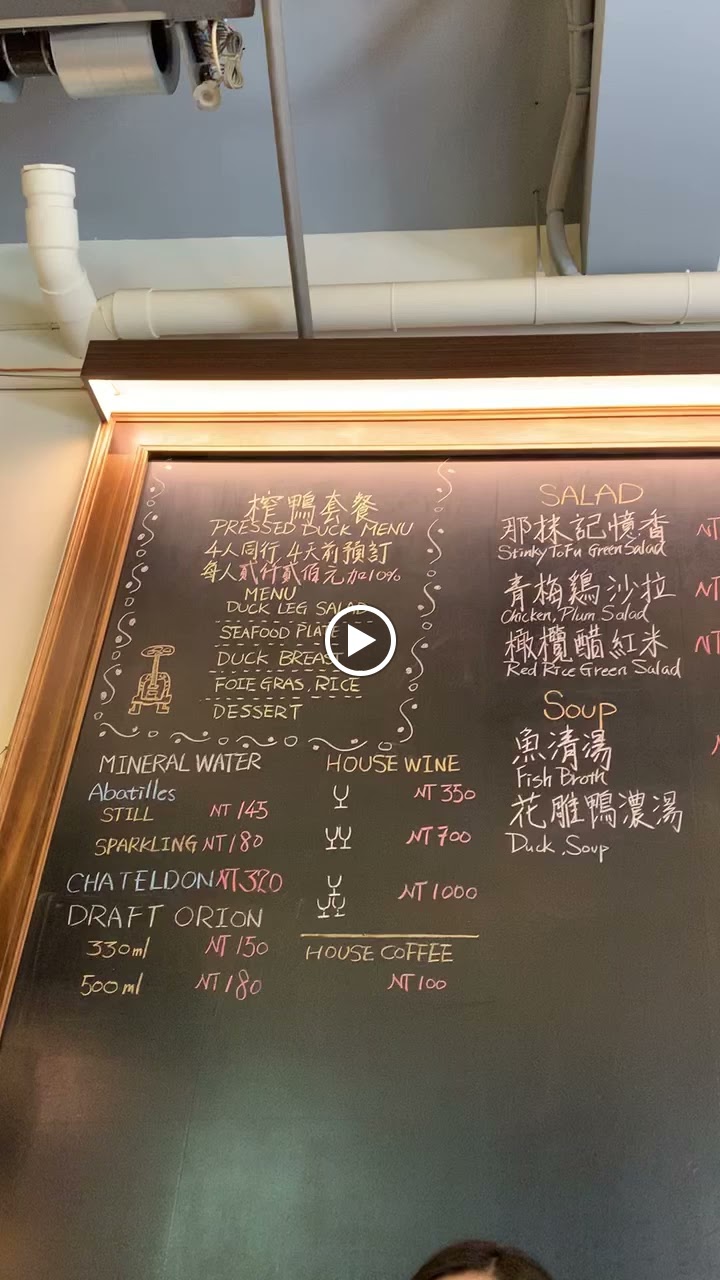 榨鴨套餐
PRESSED DUCK MENU
4人同行 4天前預訂
每人貳仟貳佰元加10%
MENU
DUCK LEG SALAD
SEAFOOD PLATE
DUCK BREAST
FOIE GRAS, RICE
DESSERT
MINERAL WATER
Abatilles
STILL NT 145
SPARKLING NT 180
CHATELDON NT 320
DRAFT ORION
330ml NT 150
500ml NT 180
HOUSE WINE
NT 350
NT 700
NT 1000
HOUSE COFFEE
NT 100
SALAD
那抹記憶香 NT
Stinky ToFu Green Salad
青梅鷄沙拉 NT
Chicken, Plum Salad
橄欖醋紅米 NT
Red Rice Green Salad
Soup
魚清湯
Fish Broth
花雕鴨濃湯
Duck Soup